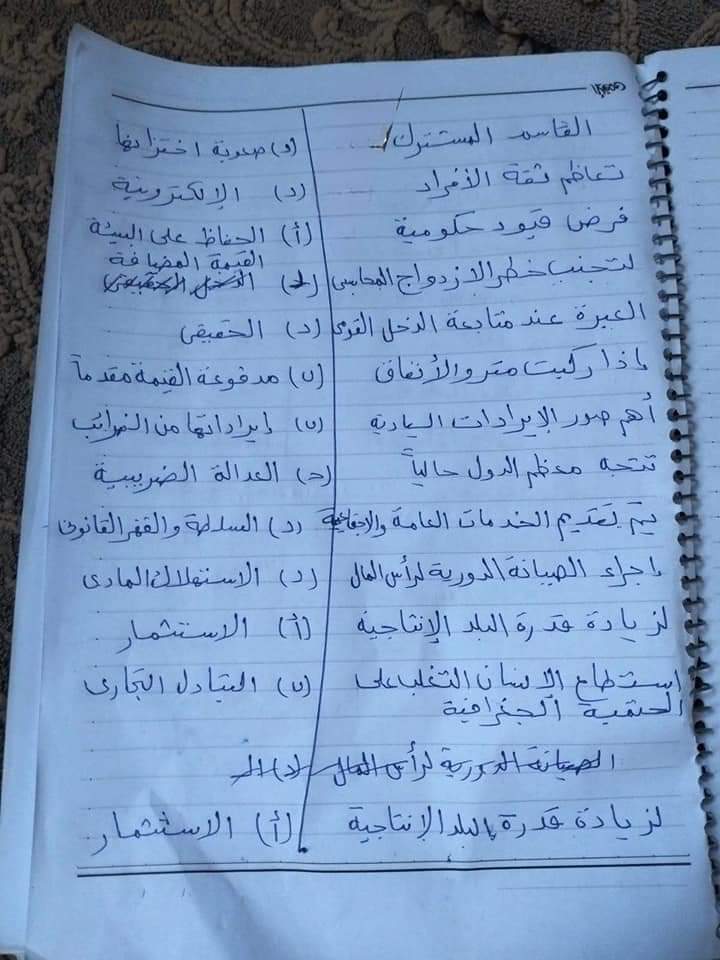 القاسم المشترك (و) صعوبة اختزانها
تعاظم ثقة الأفراد (د) الإلكترونية
فرض قيود حكومية (أ) الحفاظ على البيئة
القيمة المضافة
لتجنب خطر الازدواج المحاسبى
العبرة عند متابعة الدخل القومى (د) الحقيقى
إذا ركبت مترو الأنفاق (ب) مدفوعة القيمة مقدماً
أهم صور الإيرادات السيادية (ب) إيراداتها من الضرائب
تتجه معظم الدول حالياً (ج) العدالة الضريبية
يتم تقديم الخدمات العامة والاجتماعية (د) السلطة والقهر القانونى
إجراء الصيانة الدورية لرأس المال (د) الاستهلاك المادى
لزيادة قدرة البلد الإنتاجية (أ) الاستثمار
استطاع الإنسان التغلب على (ب) التبادل التجارى
الحتمية الجغرافية
الصيانة الدورية لرأس المال (د) الـ
لزيادة قدرة البلد الإنتاجية (أ) الاستثمار